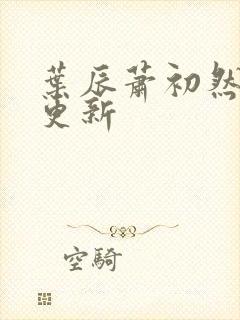 葉辰蕭初然
更新
空騎